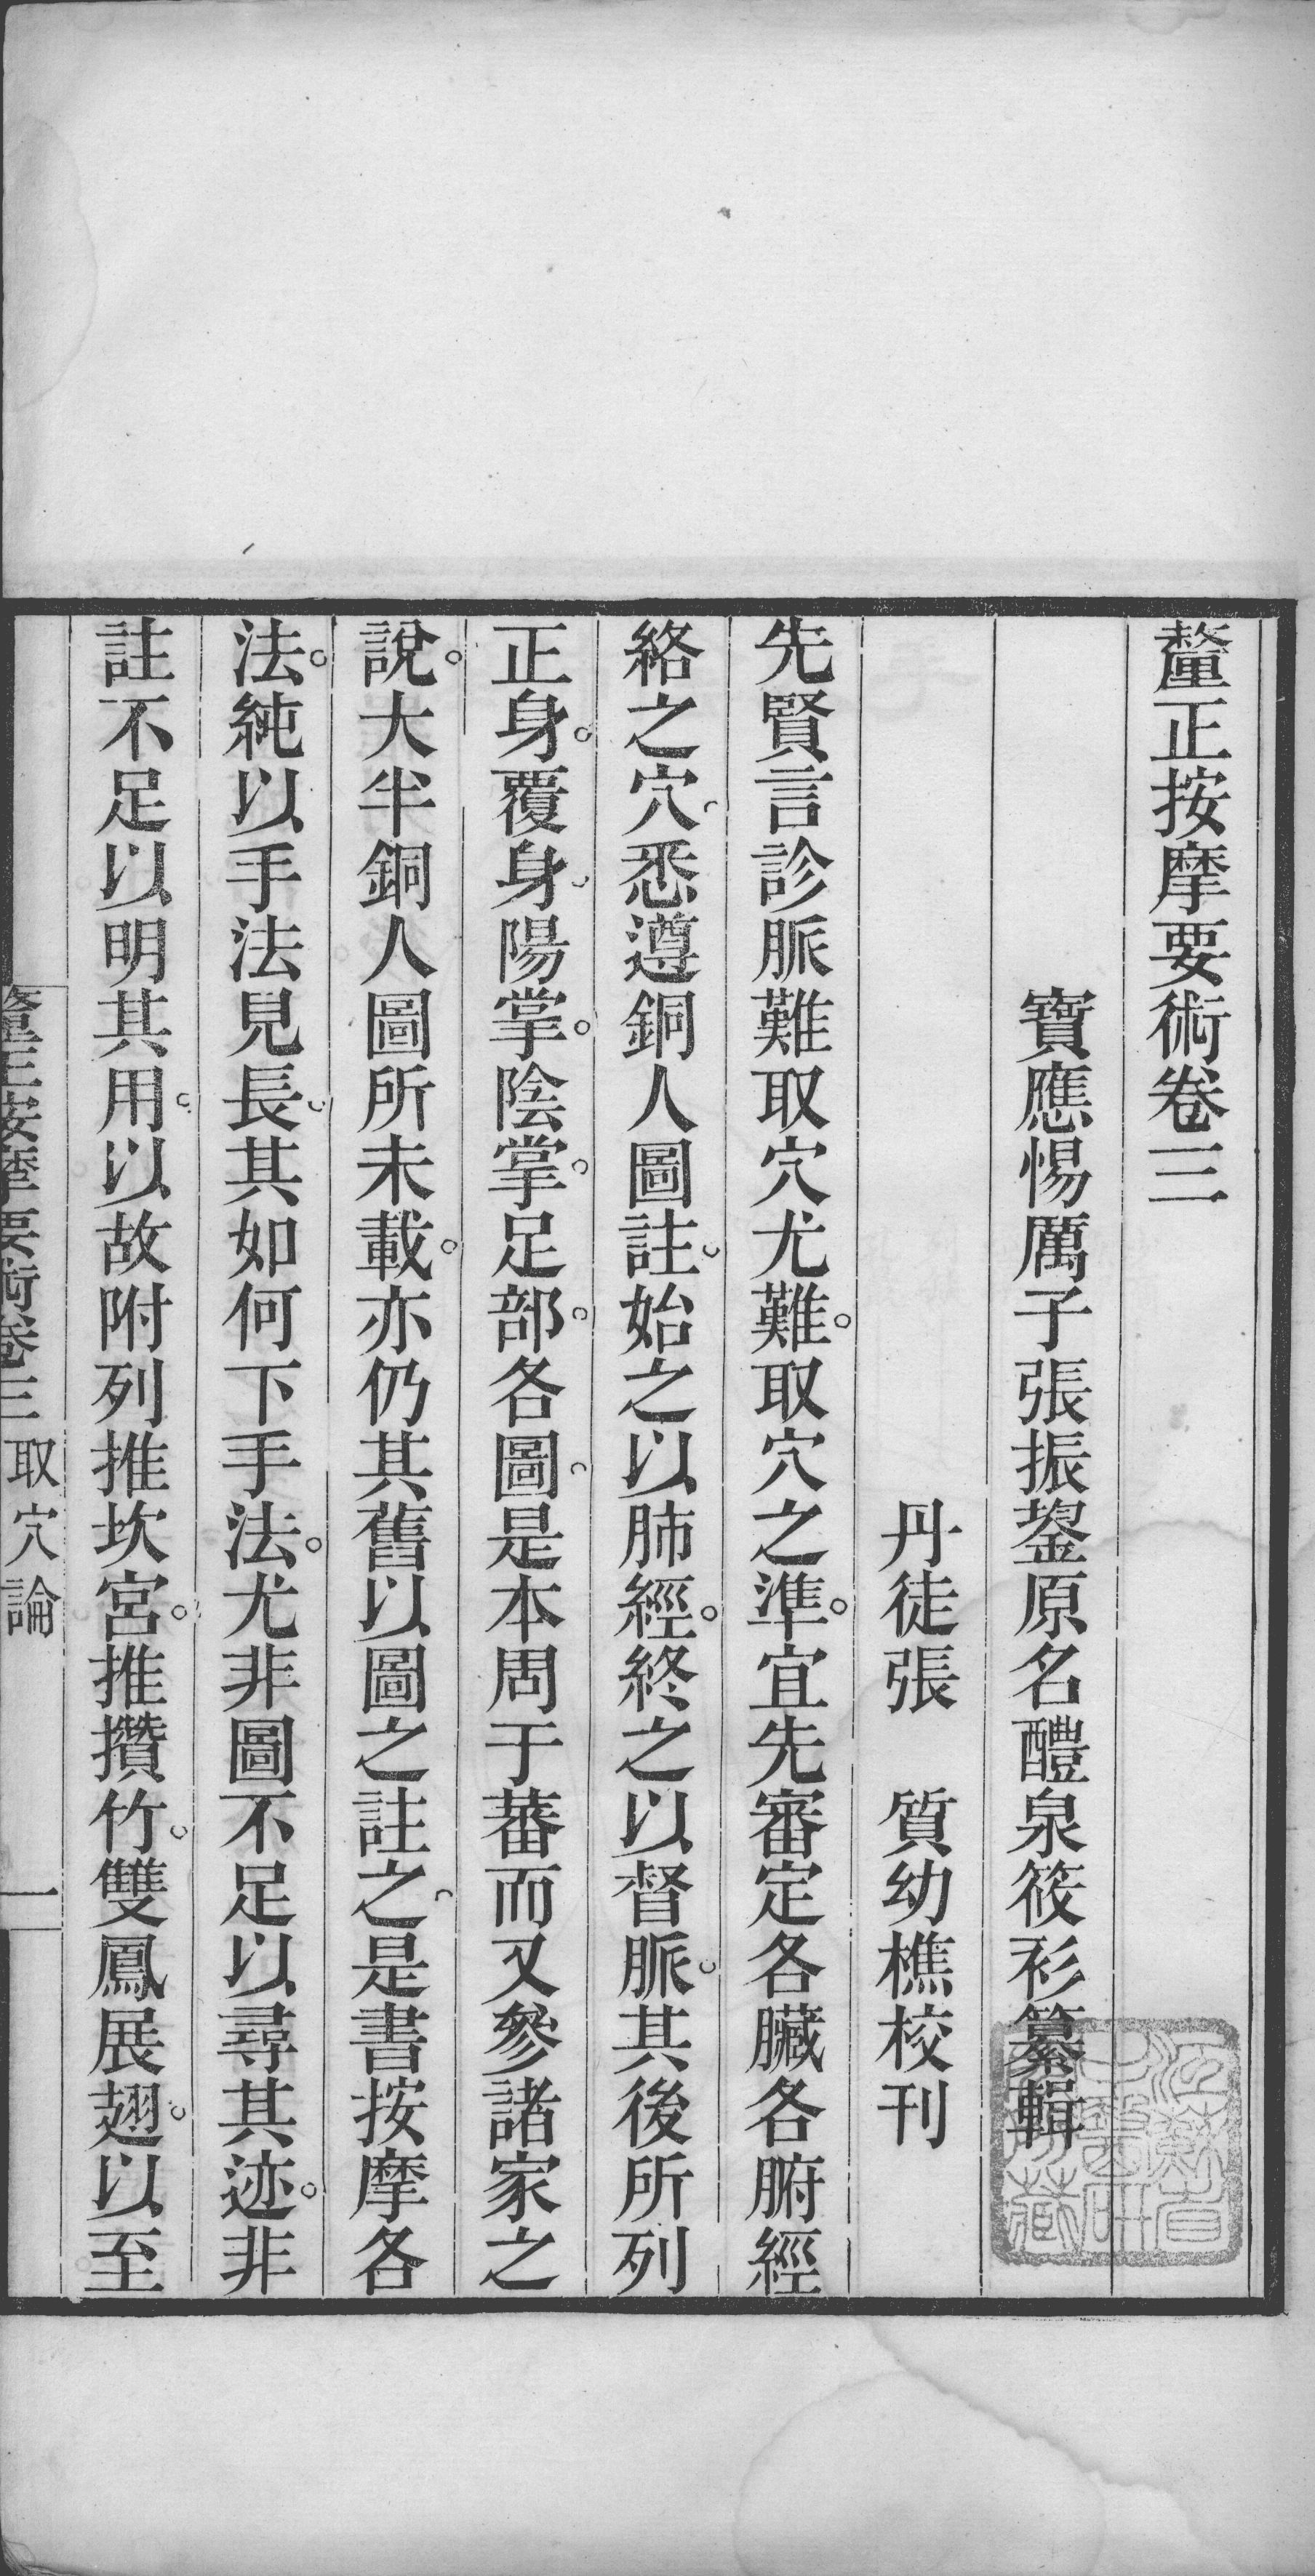 釐正按摩要術卷三
寶應惕厲子張振鋆原名醴泉筱衫纂輯
丹徒張　質幼樵校刊
先賢言診脈難取穴尤難。取穴之準。宜先審定各臟各腑經
絡之穴。悉遵銅人圖註。始之以肺經。終之以督脈。其後所列
正身。覆身。陽掌。陰掌。足部。各圖。是本周于蕃而又參諸家之
說。大半銅人圖所未載。亦仍其舊以圖之註之。是書按摩各
法。純以手法見長。其如何下手法。尤非圖不足以尋其迹。非
註不足以明其用。以故附列推坎宮。推攢竹。雙鳳展翅。以至
釐正按摩要術卷三　取穴論　一